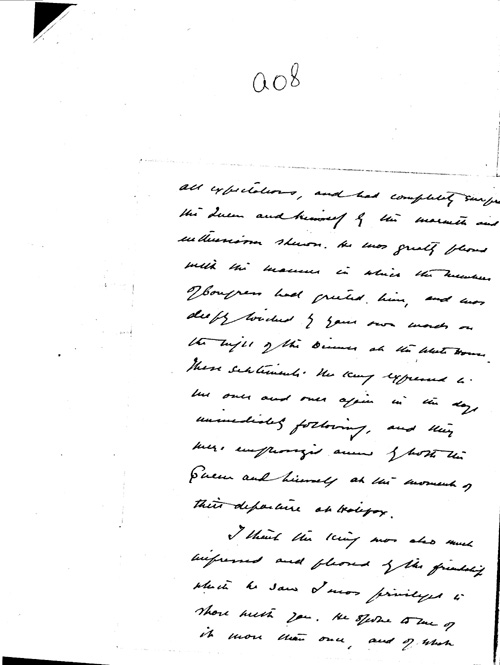 a08
all expectations, and had completely
the Queen and himself by the warmth and
enthusiasm shewn. He was greatly pleased
with the manner in which the members
of Congress had greeted him, and was
deeply touched by your own words on
the night of the Dinner at the White House.
These sentiments the King expressed to
me over and over again in the days
immediately following, and they
were anew by both the
Queen and himself at the moment of
their departure at Halifax.
I think the King was also much
impressed and pleased by the friendship
which he saw I was privileged to
share with you. He spoke to me of
it more than once, and of what